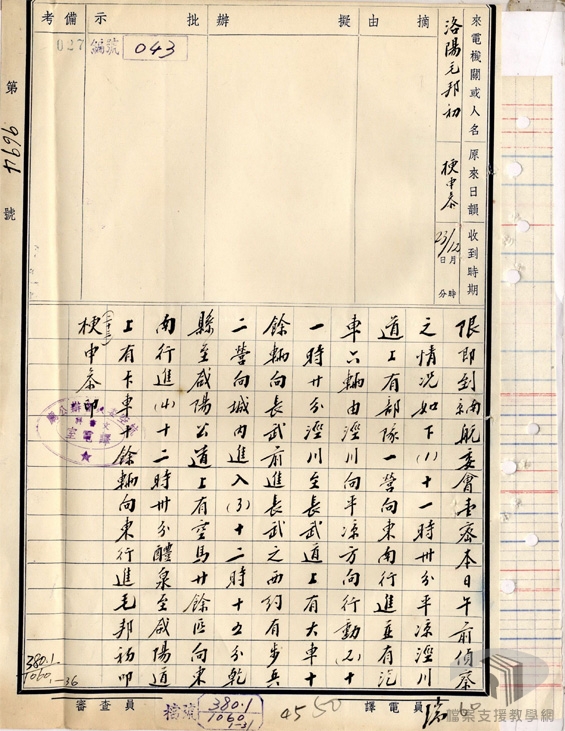 來電機關或人名
洛陽毛邦初
原來日韻
梗申叅
收到時期
23/12
月
日
時
分
摘由
擬辦
批示
備考
027
編號 043
第 9694 號
限即到綱航委會
密本日午前偵察
之情況如下(1)十一時卅分平涼涇川
道上有部隊一營向東南行進並有汽
車六輛由涇川向平涼方向行動(2)十
一時廿分涇川至長武道上有大車十
餘輛向長武前進長武之西約有步兵
二營向城內進入(3)十二時十五分乾
縣至咸陽公道上有空馬廿餘匹向東
南行進(4)十二時卅分醴泉至咸陽道
上有卡車十餘輛向東行進毛邦初叩
梗申叅印
(二十三)
譯電室
380.1
1060.1
-36
審查員
檔號
380.1
1060.1
-31
45 50
譯電員
60
檔案支援教學網